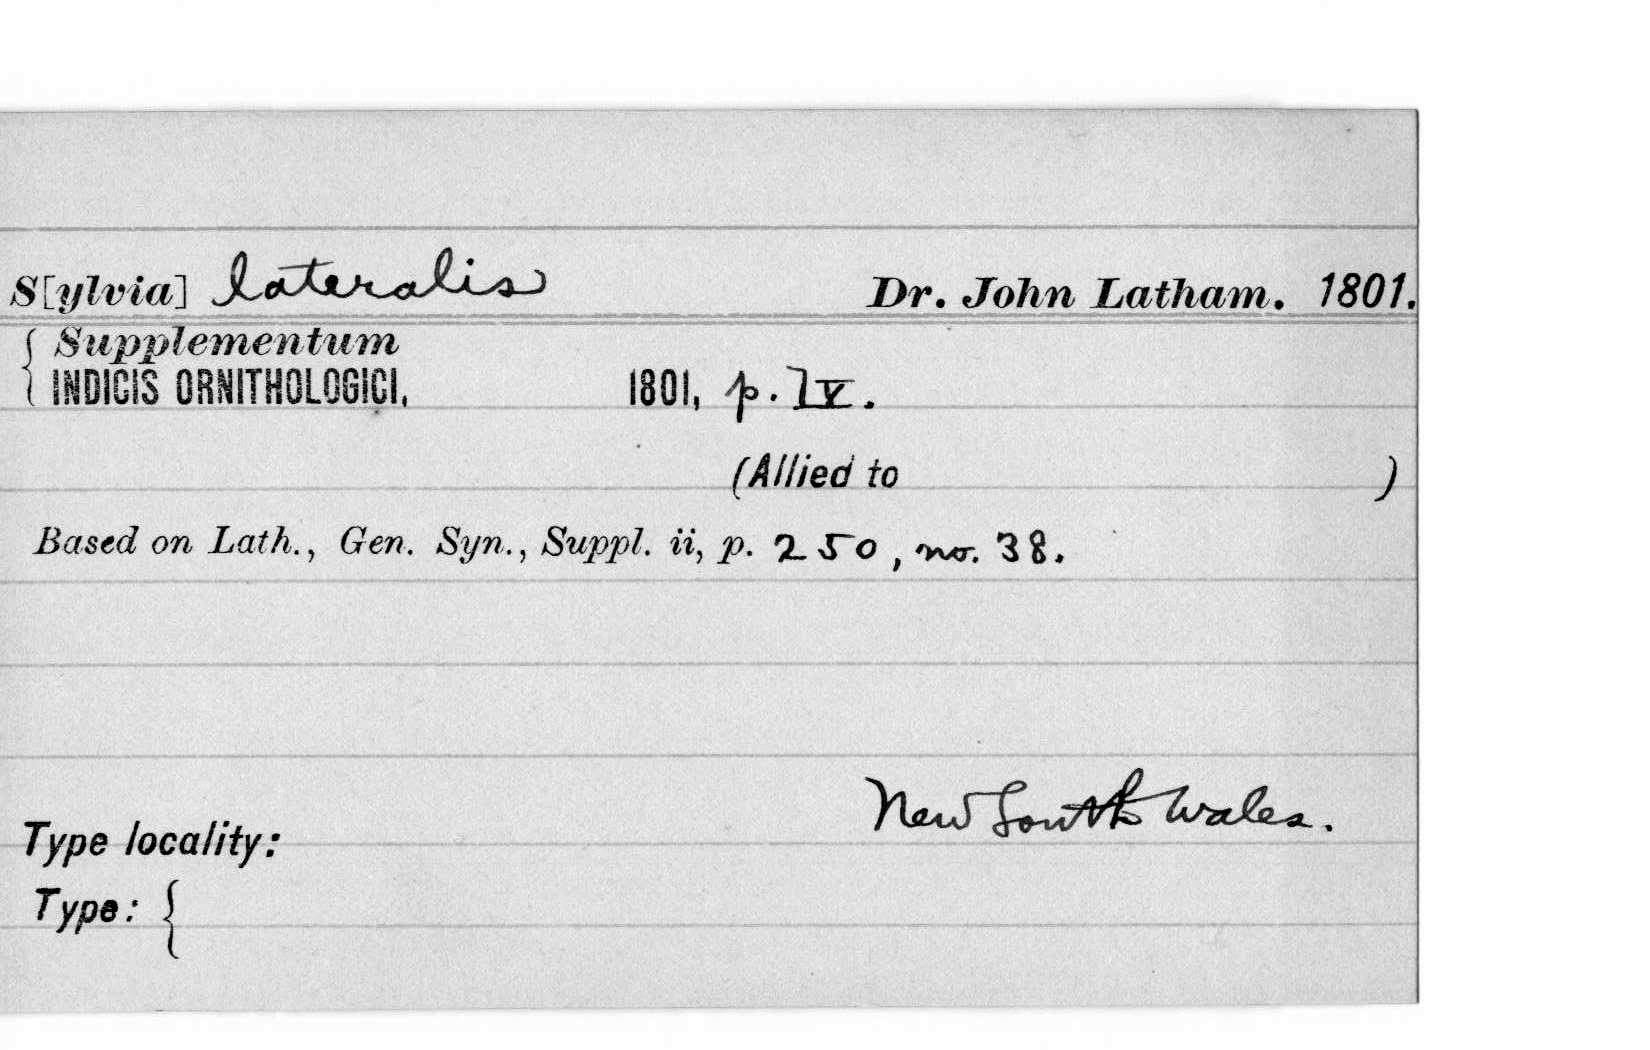 S[ylvia] lateralis Dr. John Latham. 1801.
{ Supplementum
INDICIS ORNITHOLOGICI, 1801, p. lv.
(Allied to )
Based on Lath., Gen. Syn., Suppl. ii, p. 250, no. 38.
New South Wales.
Type locality:
Type: {